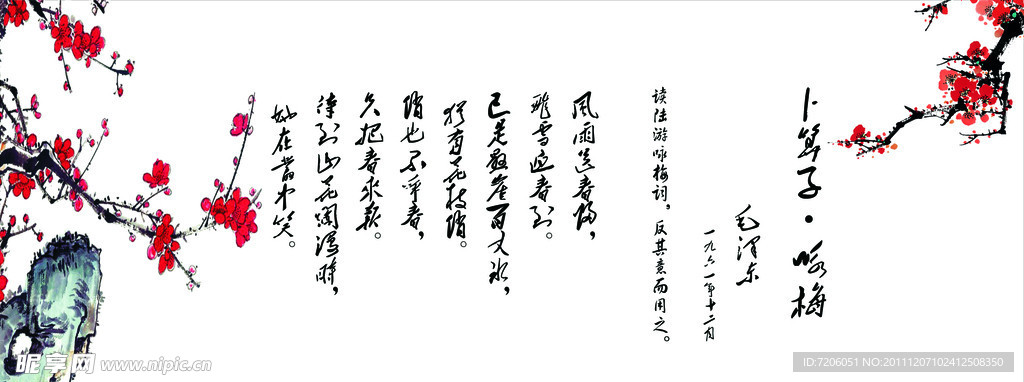 卜算子·咏梅
毛泽东
一九六一年十二月
读陆游咏梅词，反其意而用之。
风雨送春归，
飞雪迎春到。
已是悬崖百丈冰，
犹有花枝俏。
俏也不争春，
只把春来报。
待到山花烂漫时，
她在丛中笑。
昵享网 www.nipic.cn
ID:7206051 NO:20111207102412508350